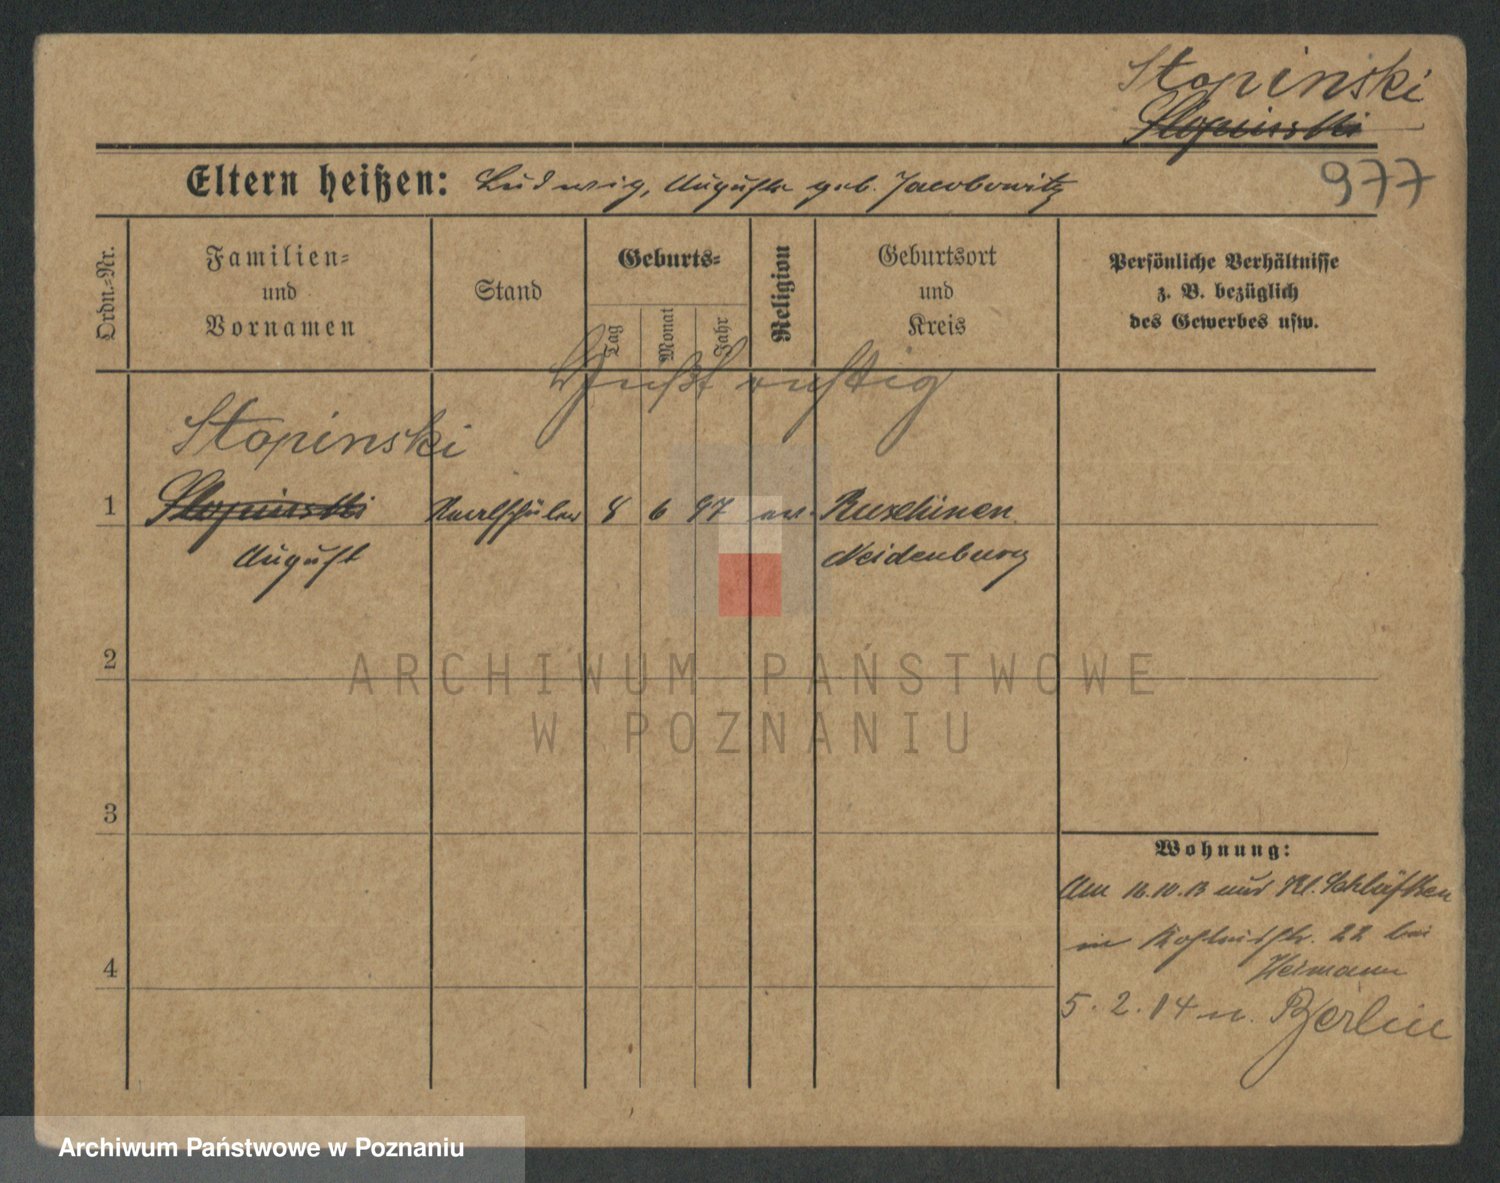 Stopinski
Slopinski
Eltern heißen: Ludwig, Auguste geb. Jacobowitz
977
Ordn.-Nr.
Familien-
und
Vornamen
Stand
Geburts-
Tag
Monat
Jahr
Religion
Geburtsort
und
Kreis
Persönliche Verhältnisse
z. B. bezüglich
des Gewerbes usw.
Stopinski
1 Slopinski 8 6 97 ev. Ruschinen
August Neidenburg
2
ARCHIWUM PAŃSTWOWE
W POZNANIU
3
Wohnung:
Am 16.10.13 aus Kl. Schläfken
in 22 bei
Heimann
4
5.2.14 n. Berlin
Archiwum Państwowe w Poznaniu